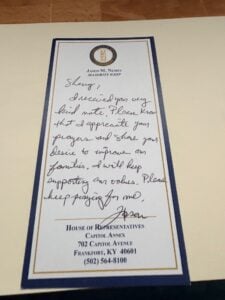 JASON M. NEMES
MAJORITY WHIP
Sherry,
I received your very
kind note. Please know
that I appreciate your
prayers and share your
desire to improve our
families. I will keep
supporting our values. Please
keep praying for me,
Jason
HOUSE OF REPRESENTATIVES
CAPITOL ANNEX
702 CAPITOL AVENUE
FRANKFORT, KY 40601
(502) 564-8100